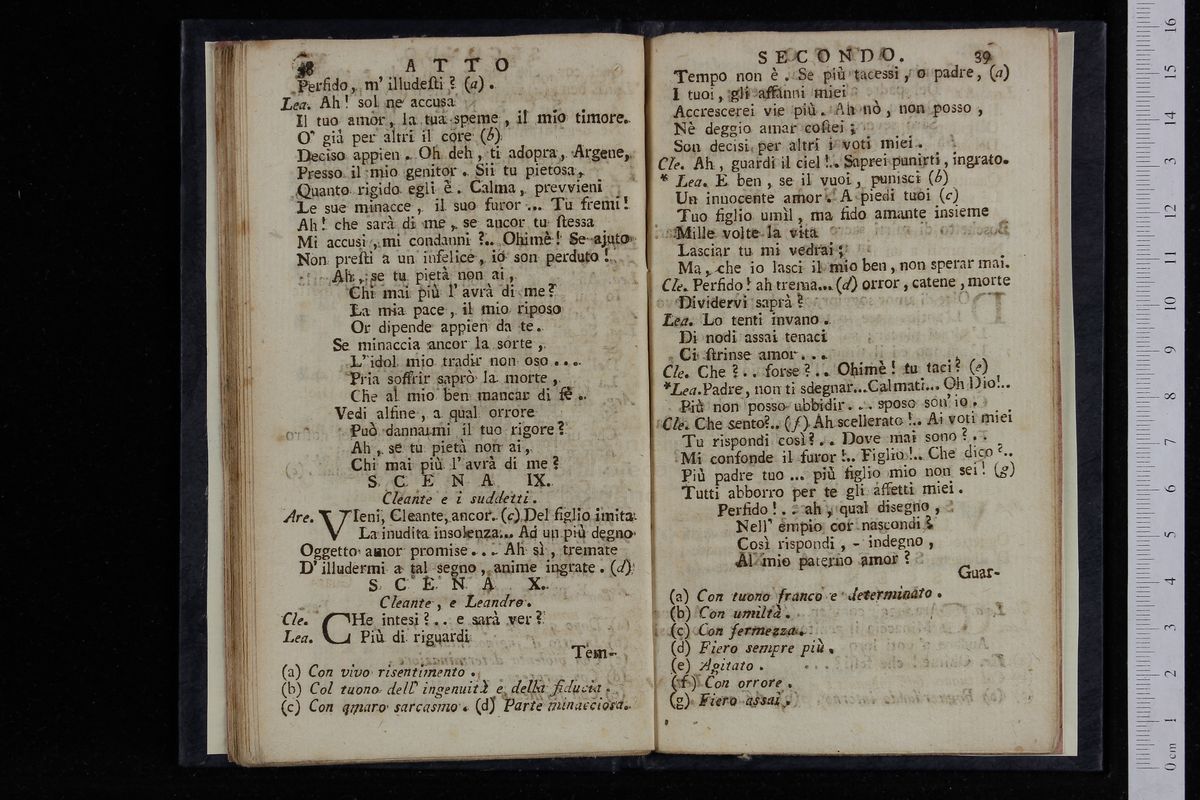 38 ATTO
Perfido, m' illudesti? (a).
Lea. Ah! sol ne accusa
Il tuo amor, la tua speme, il mio timore.
O' già per altri il core (b)
Deciso appien. Oh deh, ti adopra, Argene,
Presso il mio genitor. Sii tu pietosa,
Quanto rigido egli è. Calma, prevvieni
Le sue minacce, il suo furor ... Tu fremi!
Ah! che sarà di me, se ancor tu stessa
Mi accusi, mi condanni?.. Ohimè! Se ajuto
Non presti a un infelice, io son perduto!
Ah, se tu pietà non ai,
Chi mai più l' avrà di me?
La mia pace, il mio riposo
Or dipende appien da te.
Se minaccia ancor la sorte,
L' idol mio tradir non oso ....
Pria soffrir saprò la morte,
Che al mio ben mancar di fè.
Vedi alfine, a qual orrore
Può dannarmi il tuo rigore?
Ah, se tu pietà non ai,
Chi mai più l' avrà di me?
SCENA IX.
Cleante e i suddetti.
Are. VIeni, Cleante, ancor. (c) Del figlio imita
La inudita insolenza... Ad un più degno
Oggetto amor promise... Ah sì, tremate
D' illudermi a tal segno, anime ingrate. (d)
SCENA X.
Cleante, e Leandro.
Cle. CHe intesi?.. e sarà ver?
Lea. Più di riguardi
Tem-
(a) Con vivo risentimento.
(b) Col tuono dell' ingenuità e della fiducia.
(c) Con amaro sarcasmo. (d) Parte minacciosa.
SECONDO. 39
Tempo non è. Se più tacessi, o padre, (a)
I tuoi, gli affanni miei
Accrescerei vie più. Ah nò, non posso,
Nè deggio amar costei;
Son decisi per altri i voti miei.
Cle. Ah, guardi il ciel!.. Saprei punirti, ingrato.
* Lea. E ben, se il vuoi, punisci (b)
Un innocente amor. A piedi tuoi (c)
Tuo figlio umìl, ma fido amante insieme
Mille volte la vita
Lasciar tu mi vedrai;
Ma, che io lasci il mio ben, non sperar mai.
Cle. Perfido! ah trema... (d) orror, catene, morte
Dividervi saprà?
Lea. Lo tenti invano.
Di nodi assai tenaci
Ci strinse amor...
Cle. Che?.. forse?.. Ohimè! tu taci? (e)
*Lea. Padre, non ti sdegnar... Calmati... Oh Dio!..
Più non posso ubbidir... sposo son' io.
Cle. Che sento?.. (f) Ah scellerato!.. Ai voti miei
Tu rispondi così?.. Dove mai sono?..
Mi confonde il furor!.. Figlio!.. Che dico?..
Più padre tuo ... più figlio mio non sei! (g)
Tutti abborro per te gli affetti miei.
Perfido!.. ah, qual disegno,
Nell' empio cor nascondi?
Così rispondi, - indegno,
Al mio paterno amor?
Guar-
(a) Con tuono franco e determinato.
(b) Con umiltà.
(c) Con fermezza.
(d) Fiero sempre più.
(e) Agitato.
(f) Con orrore.
(g) Fiero assai.
16
15
14
13
12
11
10
9
8
7
6
5
4
3
2
1
0 cm